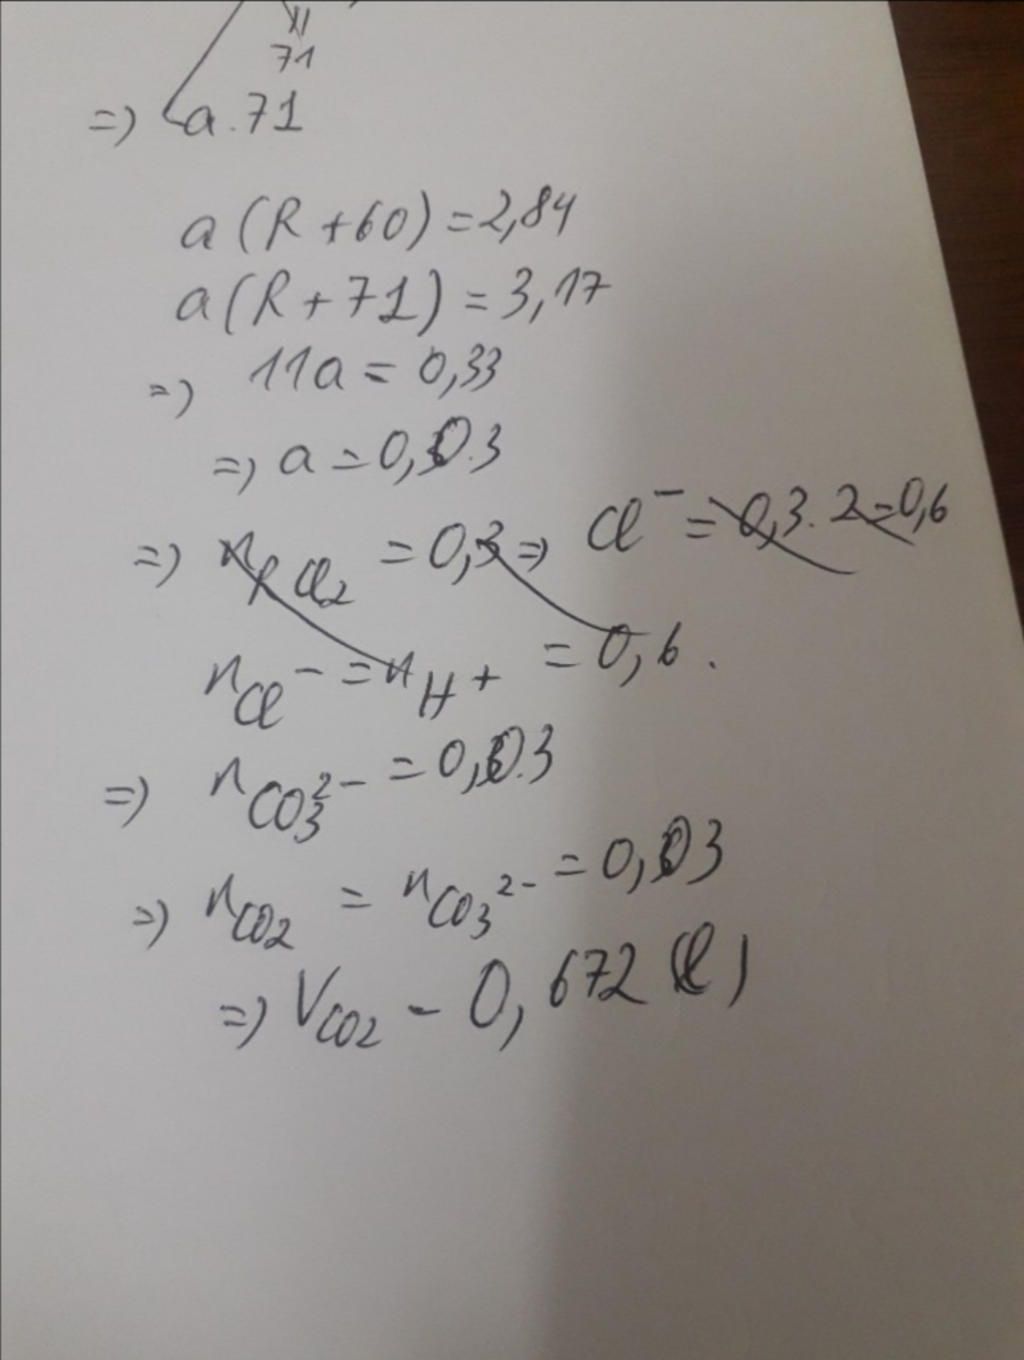 71
=) a.71
a(R+60)=2,84
a(R+71)=3,17
=) 11a=0,33
=) a=0,03
=) n RCl₂ =0,3=) Cl⁻=0,3.2=0,6
n Cl⁻ = n H⁺ =0,6.
=) n CO₃²⁻ =0,03
=) n CO₂ = n CO₃²⁻ =0,03
=) V CO₂ - 0,672 (l)